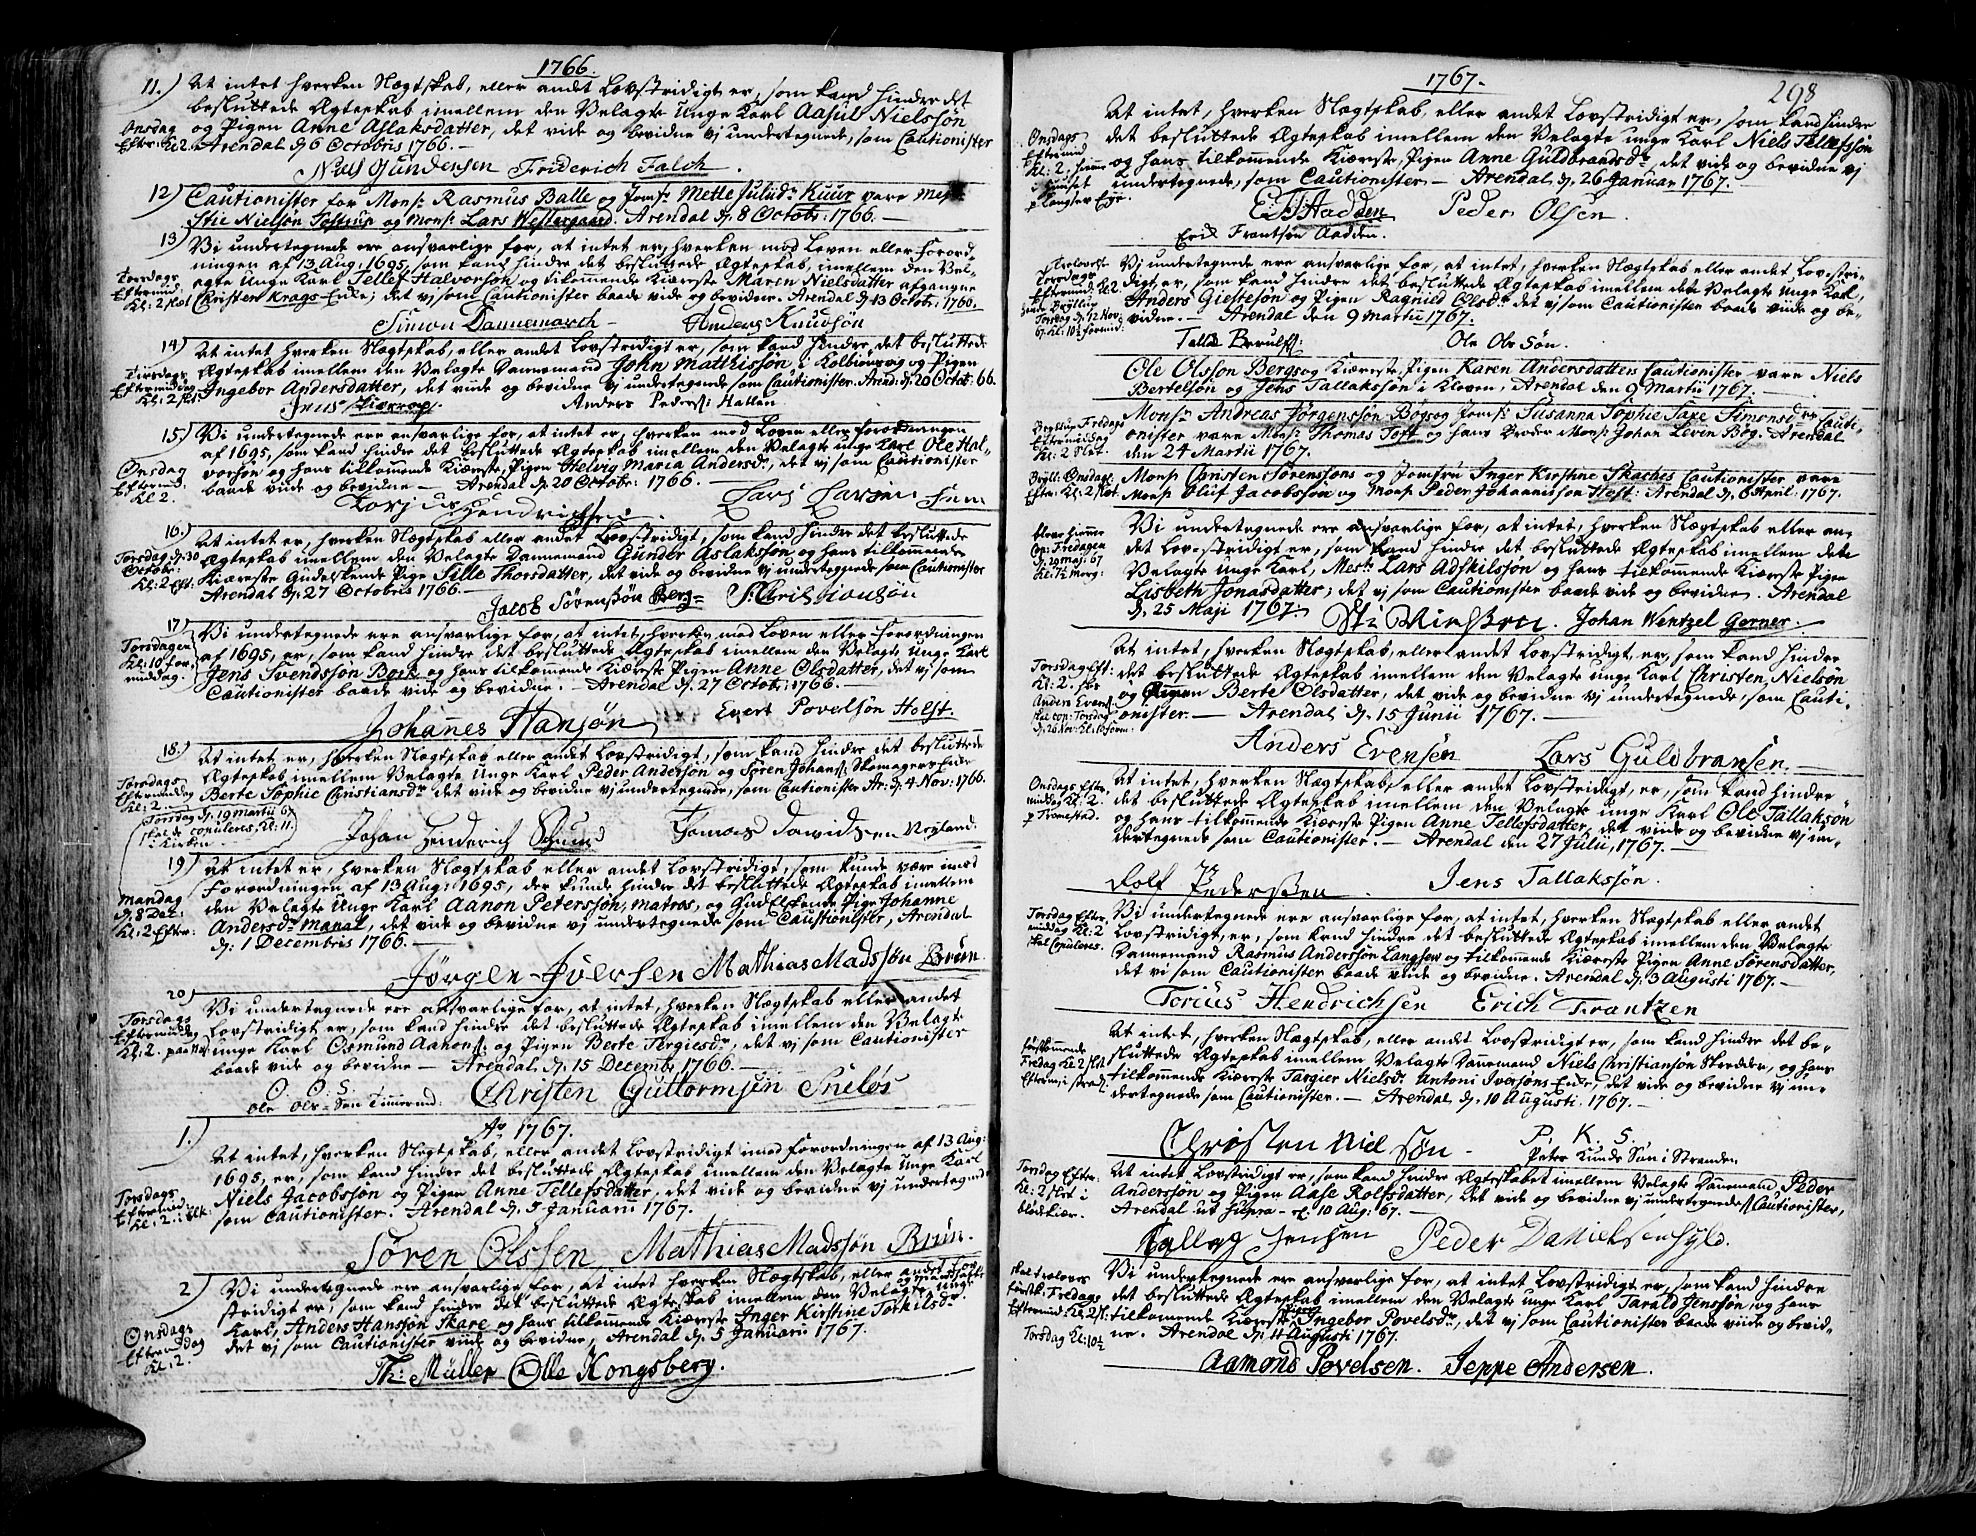 1766.
11.) At intet hverken Slægtskab, eller andet Lovstridigt er, som kand hindre det
besluttede Ægteskab imellem den Velagte Unge Karl Aasul Nielssøn
og Pigen Anne Aslaksdatter, det vide og bevidne vj undertegnede, som Cautionister
Arendal d. 6 Octobris 1766.
Onsdag
Efter: Kl. 2.
Niels Gundersen Friderich Falch.
12) Cautionister for Mons: Rasmus Balle og Jomf: Mette Kuur vare
Stie Nielsøn Tostrup og Mons: Lars Westergaard. Arendal d. 8 Octobr: 1766.
13) Vi undertegnede ere ansvarlige for, at intet er, hverken mod Loven eller Forord-
ningen af 13 Aug: 1695, som kand hindre det besluttede Ægteskab, imellem den Vel-
agte Unge Karl Tellef Halvorsøn og tilkommende Kiæreste Maren Nielsdatter afgangne
Christen Krags Enke; det vj som Cautionister baade vide og bevidner. Arendal d. 13 Octobr: 1766.
Torsdags
Eftermid:
Kl: 2 slet
Simon Dannemarch Anders Knudsøn
14) At intet hverken Slægtskab, eller andet Lovstridigt er, som kand hindre det besluttede
Ægteskab imellem den Velagte Dannemand John Matthissøn i Kolbiørnvig og Pigen
Ingebor Andersdatter, det viide og bevidne Vj undertegnede som Cautionister. Arend: d. 20 Octob: 66.
Tiirsdags
Eftermiddag
Kl: 2 slet.
Jens Anders Peders: Hallen
15.) Vi undertegnede ere ansvarlige for, at intet er, hverken mod Loven eller Forordningen
af 1695, som kand hindre det besluttede Ægteskab imellem den Velagte unge Karl Ole Hal-
vorsøn og hans tilkommende Kiæreste, Pigen Helvig Maria Andersd:, det vj som Cautionister
baade viide og bevidne – Arendal d. 20 Octobr: 1766.
Onsdag
Efterm:
Kl 2.
Torjus Hendrichsen Lars Larsen
16.) At intet er, hverken Slægtskab eller andet Lovstridigt, som kand hindre det besluttede
Ægteskab imellem den Velagte Dannemand Gunder Aslaksøn og hans tilkommende
Kiæreste Gudelskende Pige Sille Thorsdatter, det vide og bevidne vj undertegnede som Cautionister
Arendal d. 27 Octobris 1766.
Torsdag d. 30
Octobr:
Kl: 2 Eft.
Jacob Sørenssøn Berg
17) Vi undertegnede ere ansvarlige for, at intet, hverken mod Loven eller Forordningen
af 1695, er, som kand hindre det besluttede Ægteskab imellem den Velagte Unge Karl
Jens Svendssøn Bock og hans tilkommende Kiæreste Pigen Anne Olsdatter, det vj som
Cautionister baade vide og bevidne. – Arendal d. 27 Octobr: 1766.
Torsdagen
Kl: 10 for-
middag.
Johannes Hansøn Evert Povelsøn Holst.
18.) At intet er, hverken Slægtskab eller andet Lovstridigt, som kand hindre det besluttede
Ægteskab imellem Velagte Unge Karl Peder Andersøn og Søren Johans: Skomagers Enke
Berte Sophie Christiansd: det vide og bevidne vj undertegnede, som Cautionister Ar: d. 4 Nov: 1766.
Torsdags
Eftermiddag
Kl: 2.
Torsdag d. 19 Martii 67
skal de copuleres, Kl: 11.
i Kirken.
Johan Henderich Thomas Davidsen
19) At intet er, hverken Slægtskab eller andet Lovstridigt, som kunde være imod
Forordningen af 13 Aug: 1695, der kunde hindre det besluttede Ægteskab imellem
den Velagte Unge Karl Aanon Peterssøn, matros, og Gudelskende Pige Johanne
Andersd: Manal, det vide og bevidne vj undertegnede som Cautionister, Arendal
d. 1 Decembris 1766.
Mandag
d. 8 Dec:
Kl: 2 Efter:
Jørgen Iversen Mathias Madssøn Bruun.
20) Vi undertegnede ere ansvarlige for, at intet, hverken Slægtskab eller andet
Lovstridigt er, som kand hindre det besluttede Ægteskab imellem den Velagte
unge Karl Osmund Aanons: og Pigen Berte Tergiesd:, det vj som Cautionister
baade vide og bevidne – Arendal, d. 15 Decembr 1766.
Torsdags
Eftermiddag
Kl: 2.
O. O. S.
Ole Ols-Søn Timmermd. Christen Guttormsen Sneløs
Ao 1767.
1.) At intet, hverken Slegtskab, eller andet Lovstridigt imod Forordningen af 13 Aug:
1695, er, som kand hindre det besluttede Ægteskab imellem den Velagte Unge Karl
Niels Jacobssøn og Pigen Anne Tellefsdatter, det vide og bevidne vj undertegnede
som Cautionister. Arendal d. 5 Januarii 1767.
Torsdags
Efterm:
Kl: 2
Søren Olssen, Mathias Madssøn Bruun.
2) Vi undertegnede ere ansvarlige for, at intet hverken Slægtskab, eller andet Lov-
stridigt er, som kand hindre det besluttede Ægteskab imellem den Velagte unge
Karl, Anders Hanssøn Skare og hans tilkommende Kiæreste Inger Kirstine Torkilsd:
det vj som Cautionister viide og bevidne, Arendal d. 5 Januarii 1767.
Onsdags
Eftermiddag
Kl: 2.
Th: Müller Olle Kongsberg.
1767.
298
At intet, hverken Slægtskab, eller andet Lovstridigt er, som kand hindre
det besluttede Ægteskab imellem den Velagte unge Karl Niels Tellefssøn
og hans tilkommende Kiæreste, Pigen Anne Guldbrandsd:, det vide og bevidne vj
undertegnede, som Cautionister – Arendal d. 26 Januar 1767.
Onsdags
Eftermid
Kl: 2, hiemme
i Huuset
E. F. Aadden Peder Olsen.
Erik Frantsøn Aadden.
Vi undertegnede ere ansvarlige for, at intet, hverken Slægtskab eller andet Lovstri-
digt, er, som kand hindre det besluttede Ægteskab imellem den Velagte Unge Karl,
Anders Giestesøn og Pigen Ragnild Olsd: det vj som Cautionister baade viide og be-
vidne. – Arendal den 9 Martii 1767.
Trelovede
Torsdags
Eftermid: Kl. 2
Torsdag d. 12 Nov:
67. Kl: 10½ formid:
Ole Olssøn.
Ole Olsson Bergs og Kiæreste, Pigen Karen Andersdatters Cautionister vare Niels
Bertelsøn og Jens Tallaksøn i Kleven, Arendal den 9 Martii 1767.
Mons: Andreas Jørgenssøn Bøgs og Jomf: Susanna Sophie Saxe Simonsd: Cauti-
onister vare Mons: Thomas Toft og hans Broder Mons: Johan Leven Bøg. Arendal
den 24 Martii 1767.
Bryllup Fredags
Eftermiddag
Kl: 2 Slet.
Mons: Christen Sørenssons og Jomfru Inger Kirstine Skaches Cautionister vare
Mons: Oluf Jacobssøn og Mons: Peder Johannissøn Heft: Arendal d. 6 April: 1767.
Bryll: Onsdag
Efter: Kl: 2 slet
Vi undertegnede ere ansvarlige for, at intet, hverken Slægtskab eller an-
det Lovstridigt er, som kand hindre det besluttede Ægteskab imellem dete
Velagte unge Karl, Mest: Lars Adskilssøn og hans tilkommende Kiæreste Pigen
Lisbeth Jonasdatter; det vj som Cautionister baade vide og bevidner. Arendal
d. 25 Maji 1767.
Cop: Fredagen
d. 29 Maj: 67
Kl: 7½ Morg:
Johan Wentzel Gerner.
At intet, hverken Slægtskab, eller andet Lovstridigt, er, som kand hindre
det besluttede Ægteskab imellem den Velagte Unge Karl Christen Nielsøn
og Pigen Berte Olsdatter, det vide og bevidne Vj undertegnede, som Cauti-
onister. – Arendal d. 15 Junii 1767.
Torsdag Eft:
Kl: 2. hos
Anders Evens:
skal cop: Torsdag
d. 26 Nov: Kl: 10 form:
Anders Evensøn Lars Guldbransen.
At intet, hverken Slægtskab, eller andet Lovstridigt, er, som kand hindre
det besluttede Ægteskab imellem den Velagte unge Karl Ole Tallakson
og hans tilkommende Kiæreste Pigen Anne Tellefsdatter, det viide og bevidne vj un-
dertegnede som Cautionister. – Arendal den 27 Julii, 1767.
Onsdags Efter-
middag Kl: 2.
p Tromsted.
Rolf Pederssen. Jens Tallakssøn.
Vi undertegnede ere ansvarlige for, at intet, hverken Slægtskab eller andet
Lovstridigt, er, som kand hindre det besluttede Ægteskab imellem den Velagte
Dannemand Rasmus Anderssøn Langsew og tilkommende Kiæreste Pigen Anne Sørensdatter,
det vj som Cautionister baade vide og bevidne. Arendal d. 3 Augusti 1767.
Torsdag Efter-
middag Kl: 2
skal Copuleres.
Torius Hendrichsen Erich Frantzen
At intet, hverken Slægtskab, eller andet Lovstridigt er, som kand hindre det be-
sluttede Ægteskab imellem Velagte Dannemand Niels Christiansøn Skredder, og hans
tilkommende Kiæreste Targier Nielsd: Antoni Iversøns Enke, det vide og bevidne vj un-
dertegnede som Cautionister. – Arendal d. 10 Augusti 1767.
førstkommende
Fredag Kl 2 slet
Christen Nielsøn. P. K. S.
Peter Knuds Søn i Stranden
At intet Lovstridigt er, som kand hindre Ægteskabet imellem Velagte Dannemand Peder
Anderssøn og Pigen Aase Rolfsdatter, det vide og bevidne vj undertegnede Cautionister,
Arendal ut supra – d. 10 Aug: 67.
Torsdag Efter:
Kl: 2 slet i
Tallag Jensen Peder Danielsen Hyld.
Vi undertegnede ere ansvarlige for, at intet Lovstridigt er, som kand hindre
det besluttede Ægteskab imellem den Velagte Unge Karl Tarald Jenssøn, og hans
tilkommende Kiæreste Pigen Ingebor Povelsd:, det vj som Cautionister baade viide og bevid-
ne. Arendal d. 11 Augusti 1767.
skal troloves
førstk: Fredags
Eftermid: Kl: 2 sl:
Torsdag Kl: 10½
Aamond Povelsen. Jeppe Andersen.